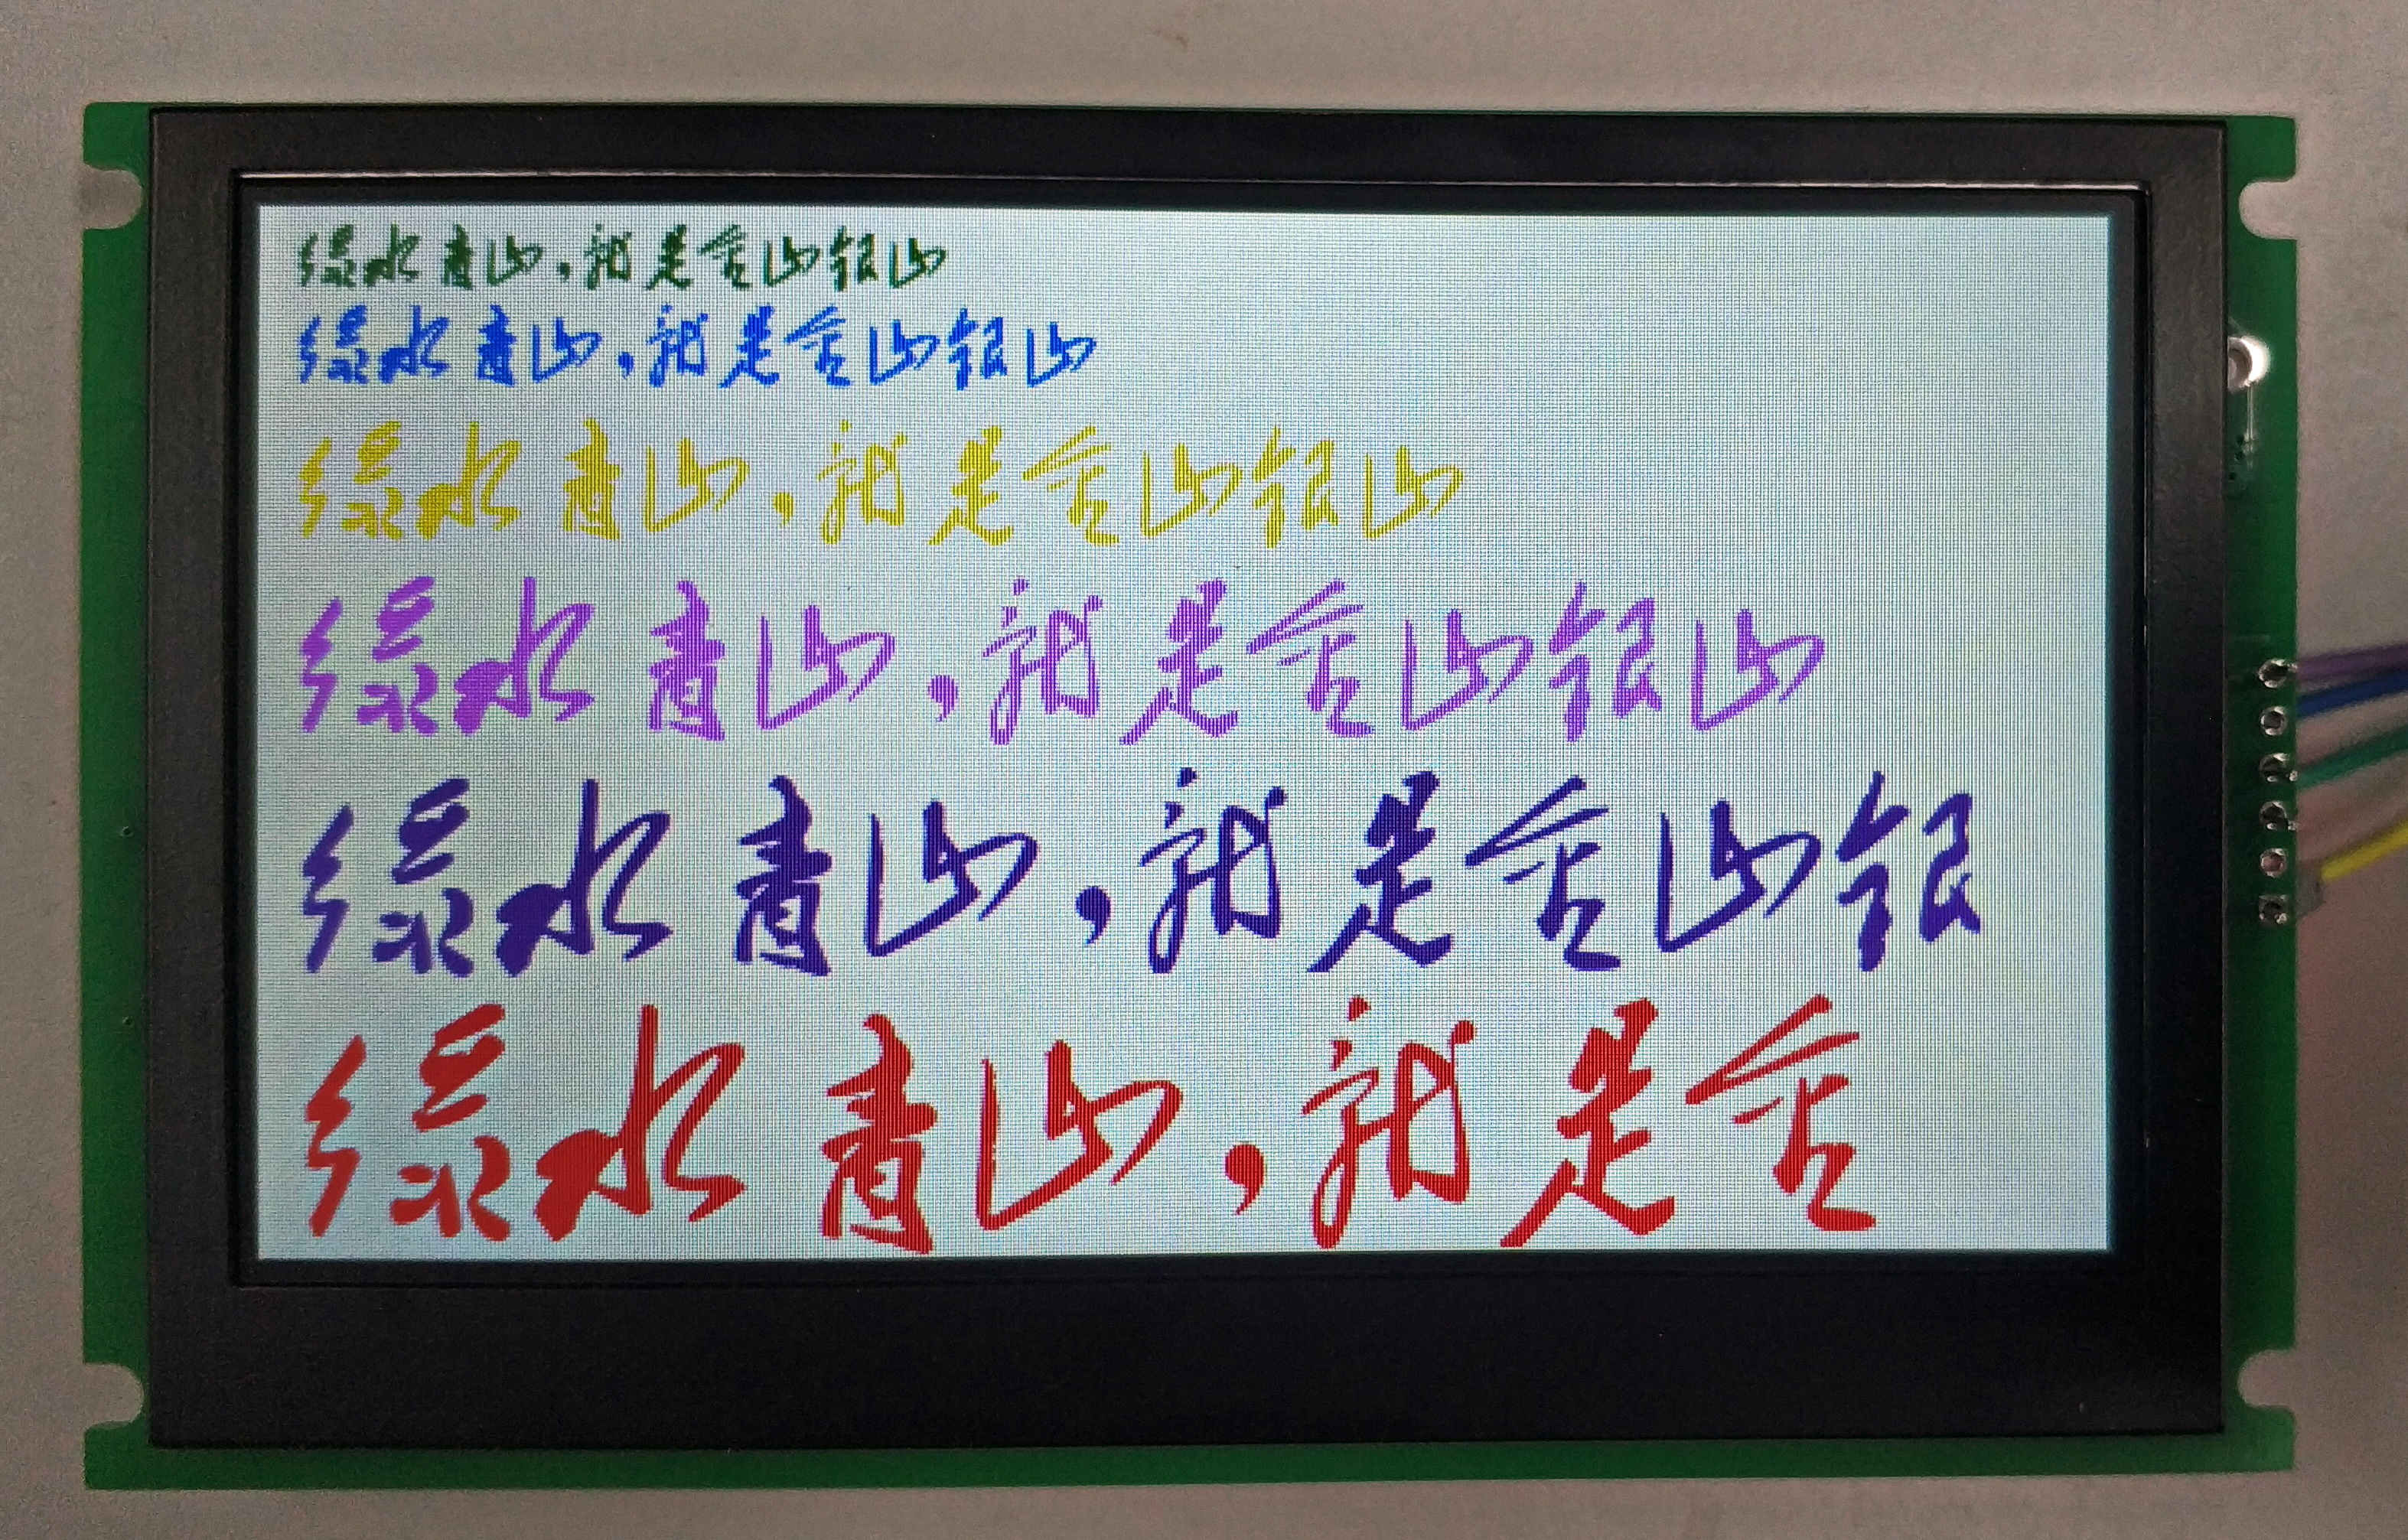 绿水青山，就是金山银山
绿水青山，就是金山银山
绿水青山，就是金山银山
绿水青山，就是金山银山
绿水青山，就是金山银
绿水青山，就是金